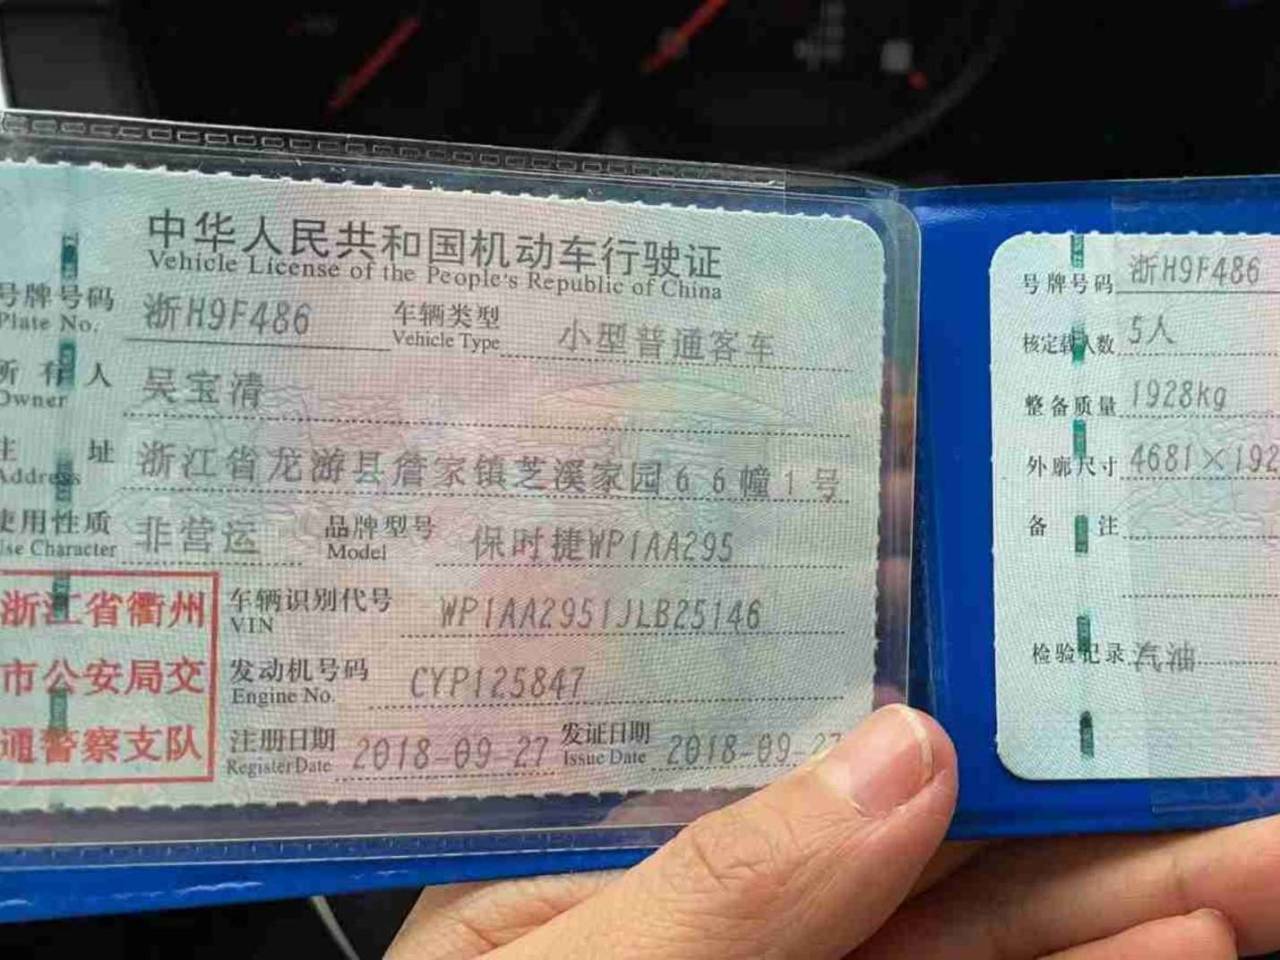 中华人民共和国机动车行驶证
Vehicle License of the People's Republic of China
号牌号码 浙H9F486 车辆类型 小型普通客车
Plate No. Vehicle Type
所有人 吴宝清
Owner
住址 浙江省龙游县詹家镇芝溪家园66幢1号
Address
使用性质 非营运 品牌型号 保时捷WP1AA295
Use Character Model
浙江省衢州
市公安局交
通警察支队
车辆识别代号 WP1AA2951JLB25146
VIN
发动机号码 CYP125847
Engine No.
注册日期 2018-09-27 发证日期 2018-09-27
Register Date Issue Date
号牌号码 浙H9F486
核定载人数 5人
整备质量 1928kg
外廓尺寸 4681×192
备注
检验记录 汽油